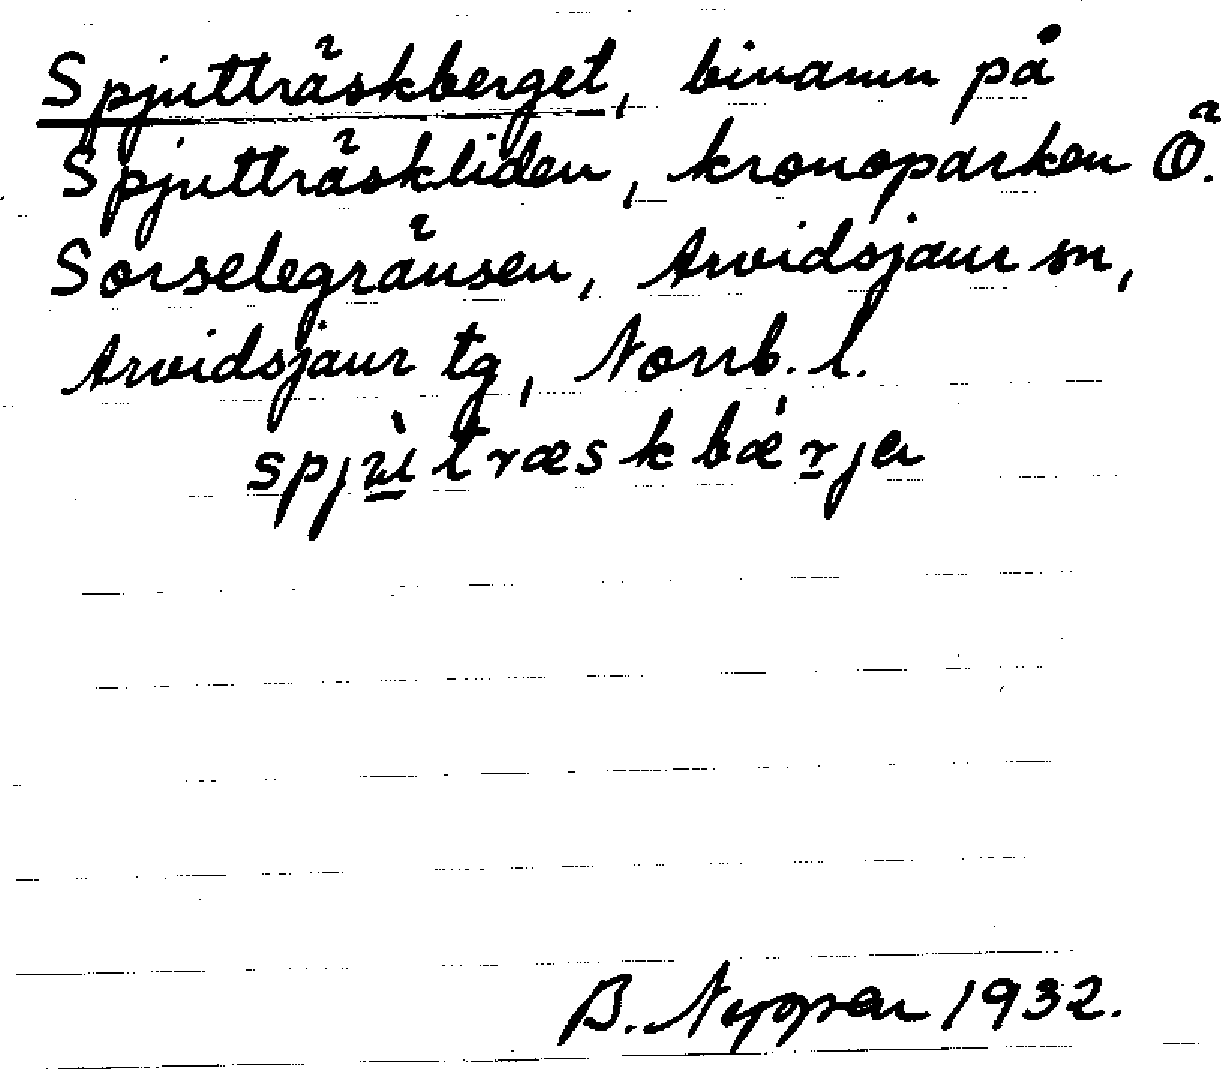 Spjutträskberget, binamn på
Spjutträskliden, kronoparken Ö.
Sorselegränsen, Arvidsjaur sn,
Arvidsjaur tg, Norrb. l.
B. 1932.